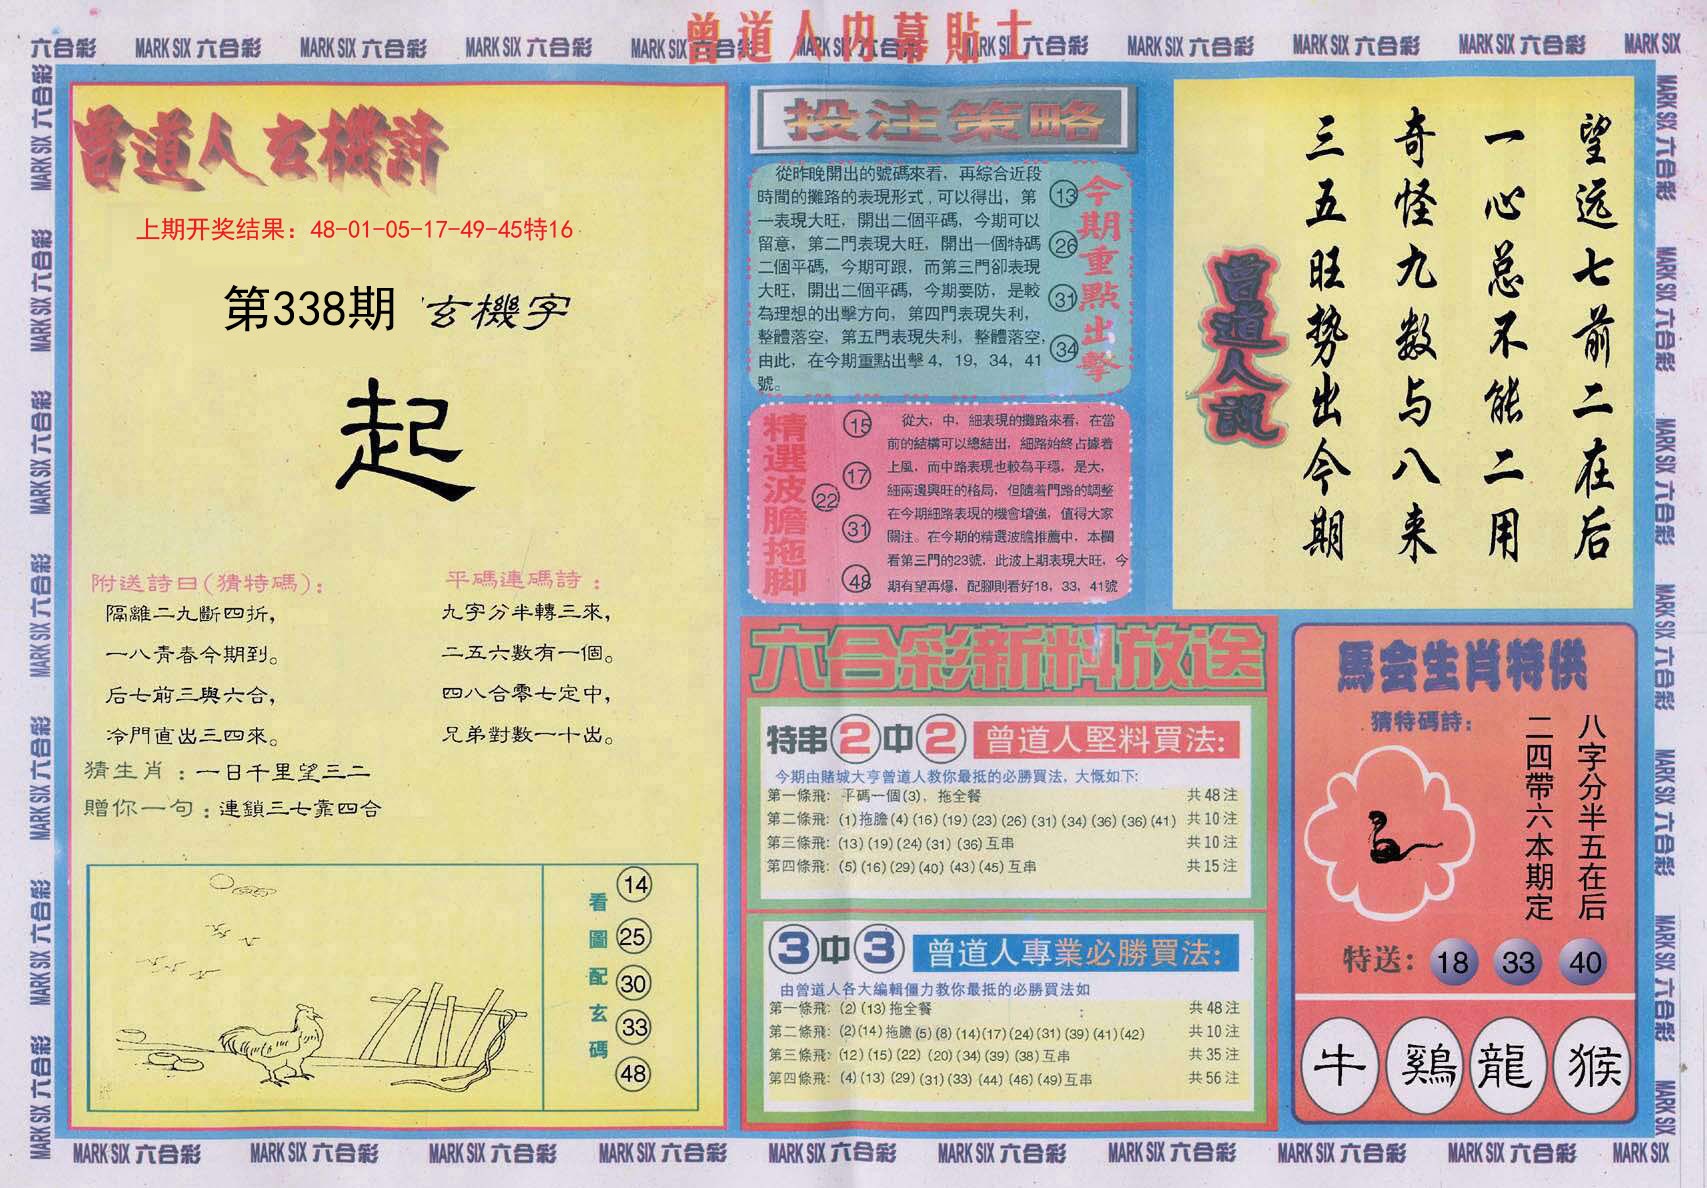 六合彩 MARK SIX 六合彩 MARK SIX 六合彩 MARK SIX 六合彩 MARK SIX 六合彩 MARK SIX 六合彩 MARK SIX 六合彩 MARK SIX 六合彩 MARK SIX 六合彩 MARK SIX 六合彩 MARK SIX
曾道人内幕貼士
曾道人玄機詩
上期开奖结果：48-01-05-17-49-45特16
第338期 玄機字
起
附送詩曰(猜特碼)：
隔離二九斷四折，
一八青春今期到。
后七前三與六合，
冷門直出三四來。
平碼連碼詩：
九字分半轉三來，
二五六數有一個。
四八合零七定中，
兄弟對數一十出。
猜生肖：一日千里望三二
贈你一句：連鎖三七靠四合
看圖配玄碼
14
25
30
33
48
投注策略
從昨晚開出的號碼來看，再綜合近段
時間的攤路的表現形式，可以得出，第
一表現大旺，開出二個平碼，今期可以
留意，第二門表現大旺，開出一個特碼
二個平碼，今期可跟，而第三門卻表現
大旺，開出二個平碼，今期要防，是較
為理想的出擊方向，第四門表現失利，
整體落空，第五門表現失利，整體落空，
由此，在今期重點出擊4，19，34，41
號。
13
26
31
34
今期重點出擊
精選波膽拖脚
15
17
22
31
48
從大，中，細表現的攤路來看，在當
前的結構可以總結出，細路始終占據着
上風，而中路表現也較為平穩，是大，
細兩邊興旺的格局，但隨着門路的調整
在今期細路表現的機會增強，值得大家
關注。在今期的精選波膽推薦中，本欄
看第三門的23號，此波上期表現大旺，今
期有望再爆，配腳則看好18，33，41號
六合彩新料放送
特串2中2 曾道人堅料買法：
今期由賭城大亨曾道人教你最抵的必勝買法，大慨如下:
第一條飛: 平碼一個(3)，拖全餐 共48注
第二條飛: (1)拖膽(4)(16)(19)(23)(26)(31)(34)(36)(36)(41) 共10注
第三條飛: (13)(19)(24)(31)(36)互串 共10注
第四條飛: (5)(16)(29)(40)(43)(45)互串 共15注
3中3 曾道人專業必勝買法：
由曾道人各大編輯僵力教你最抵的必勝買法如
第一條飛: (2)(13)拖全餐 共48注
第二條飛: (2)(14)拖膽(5)(8)(14)(17)(24)(31)(39)(41)(42) 共10注
第三條飛: (12)(15)(22)(20)(34)(39)(38)互串 共35注
第四條飛: (4)(13)(29)(31)(33)(44)(46)(49)互串 共56注
望远七前二在后
一心总不能二用
奇怪九数与八来
三五旺势出今期
曾道人説
馬会生肖特供
猜特碼詩：
八字分半五在后
二四帶六本期定
特送：18 33 40
牛 鷄 龍 猴
MARK SIX 六合彩 MARK SIX 六合彩 MARK SIX 六合彩 MARK SIX 六合彩 MARK SIX 六合彩 MARK SIX 六合彩 MARK SIX 六合彩 MARK SIX 六合彩 MARK SIX 六合彩 MARK SIX